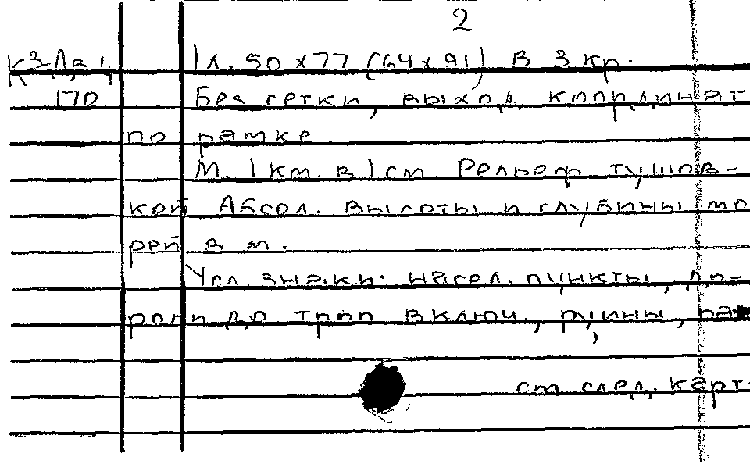 2
К3-Да 4 1 л. 50 x 77 (64 x 91) В 3 кр.
170 Без сетки, выход. координат
по рамке
М. 1 км. в 1 см Рельеф тушов-
кой Абсол. высоты и глубины мо
рей в м.
Усл. знаки: насел. пункты, до-
роги до троп включ., руины,
см след. карт